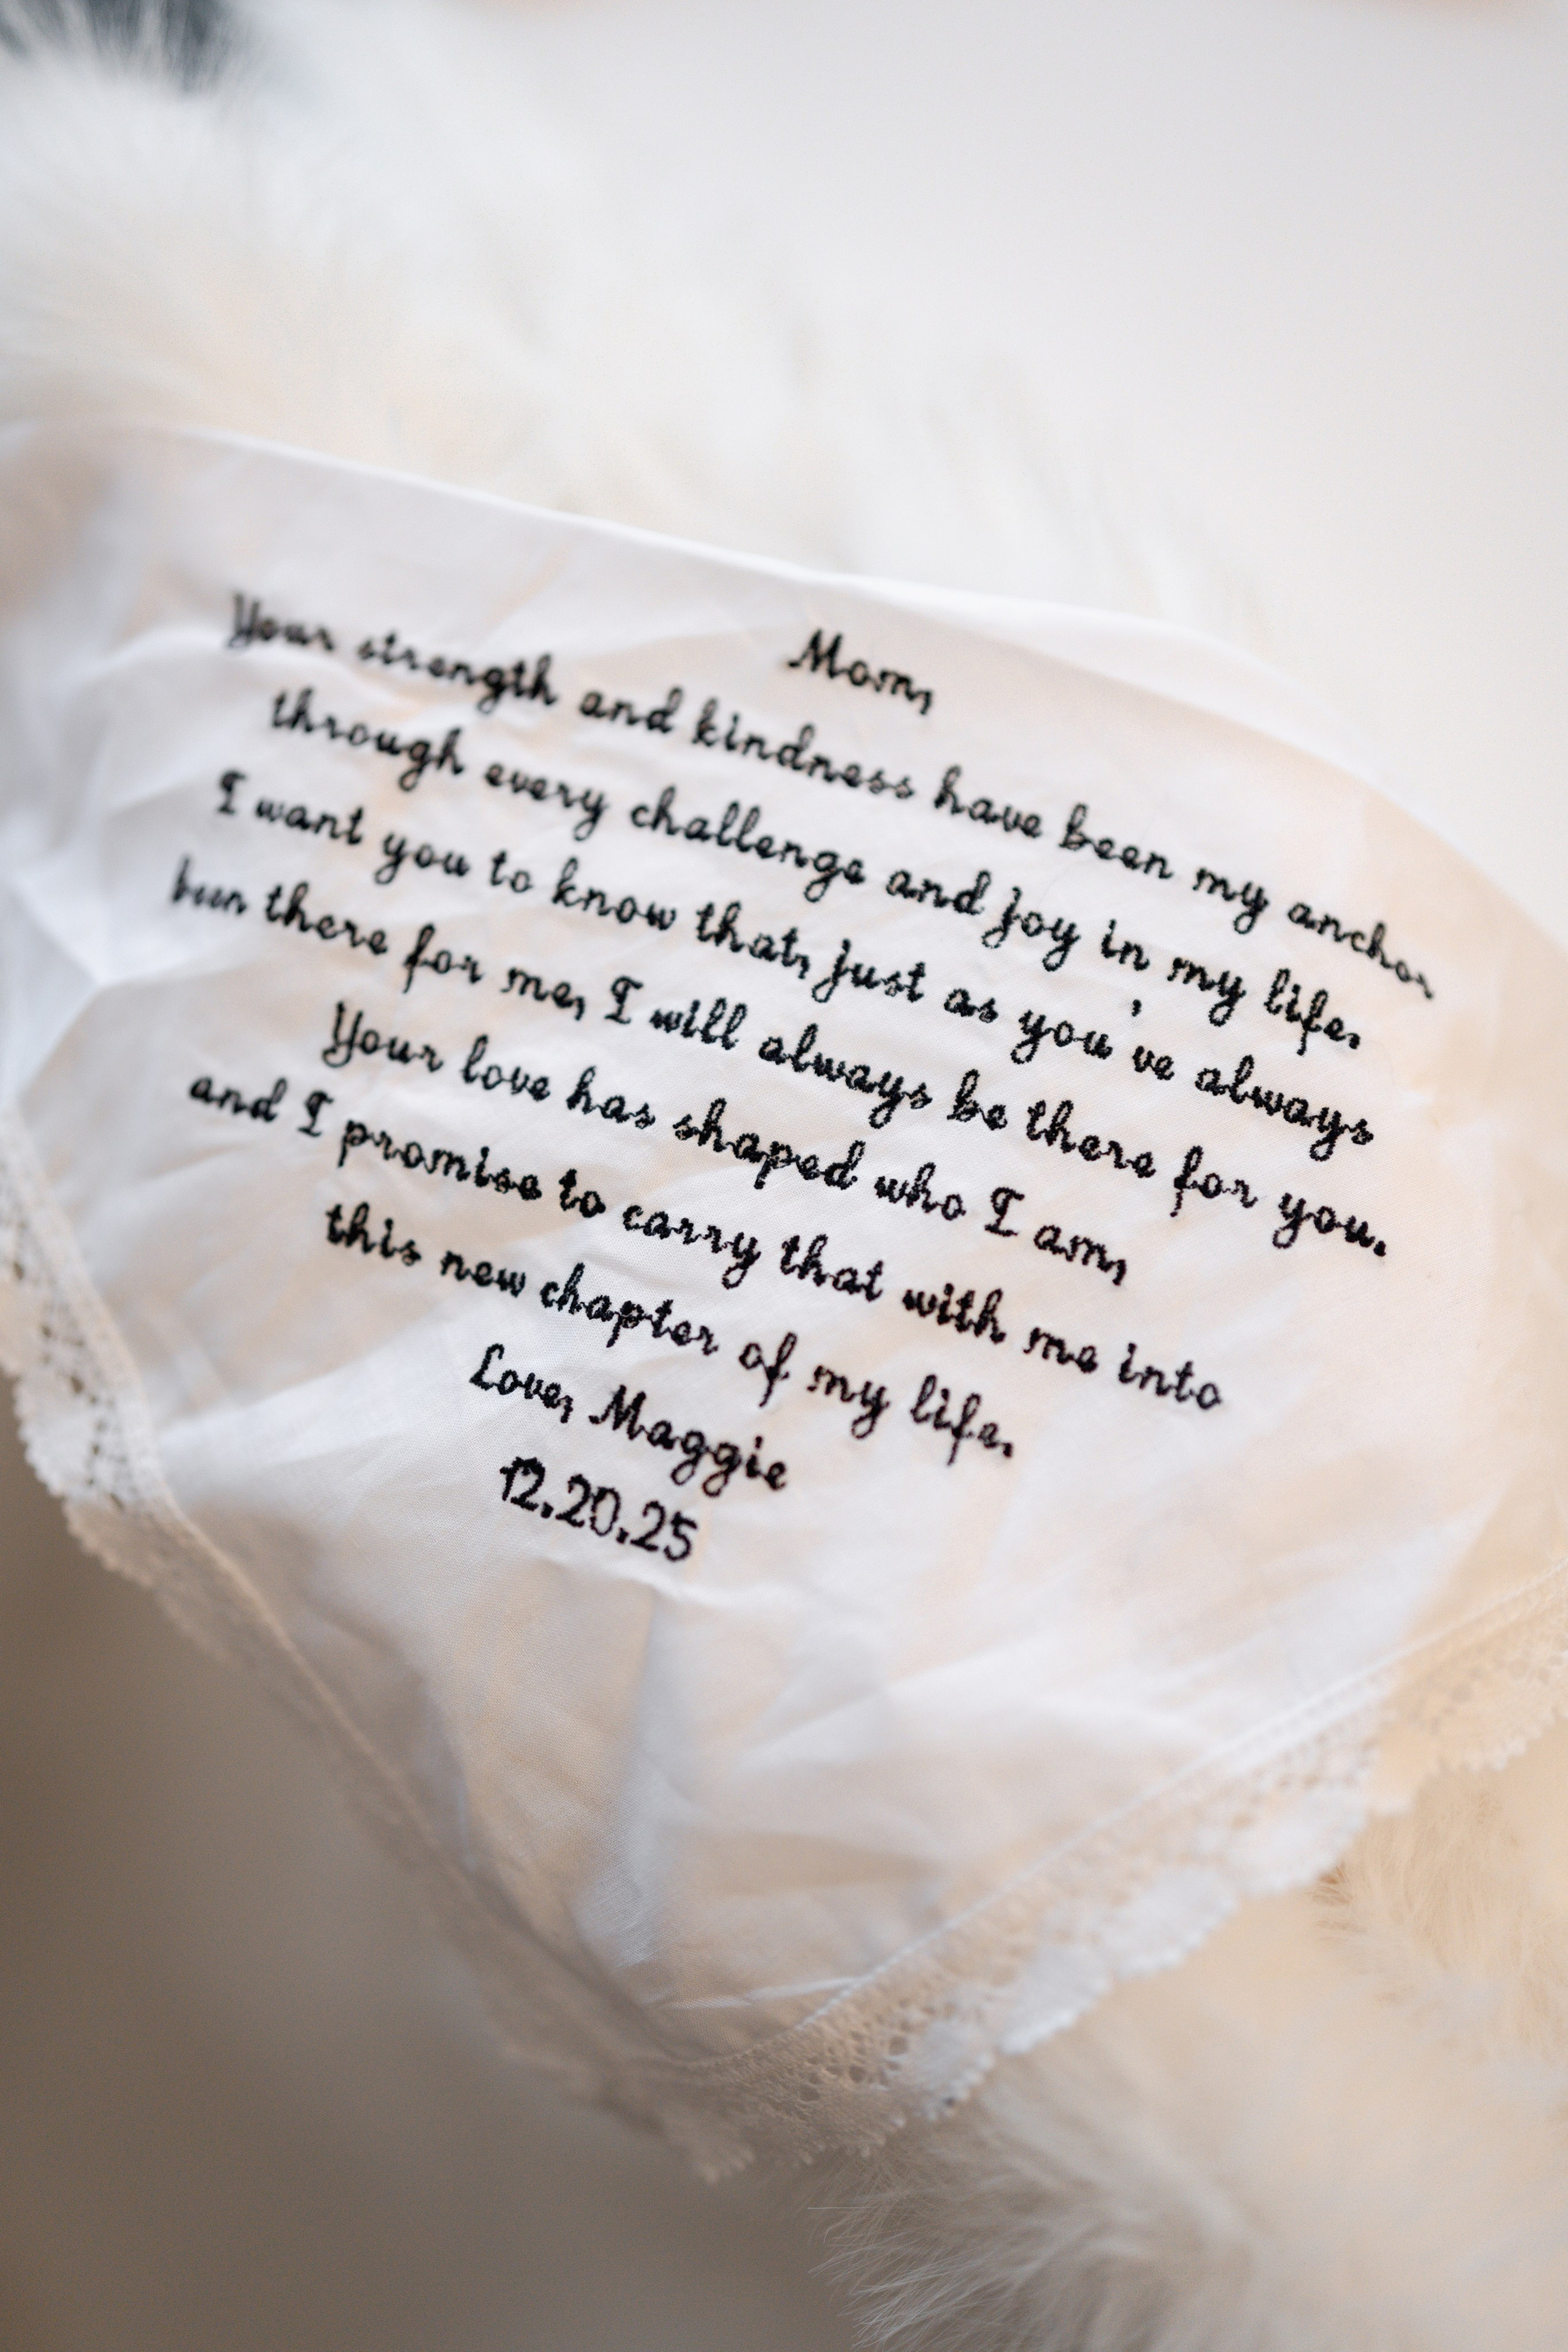 Mom,
Your strength and kindness have been my anchor
through every challenge and joy in my life.
I want you to know that, just as you've always
been there for me, I will always be there for you.
Your love has shaped who I am,
and I promise to carry that with me into
this new chapter of my life.
Love, Maggie
12.20.25